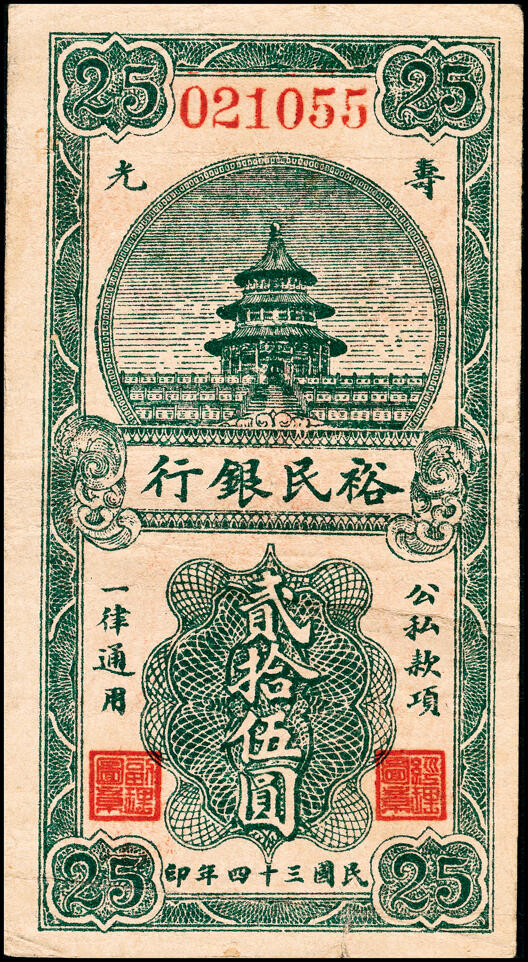 25
021055
25
壽光
裕民銀行
公私款項
貳拾伍圓
一律通用
經理圖章
副理圖章
民國三十四年印
25
25